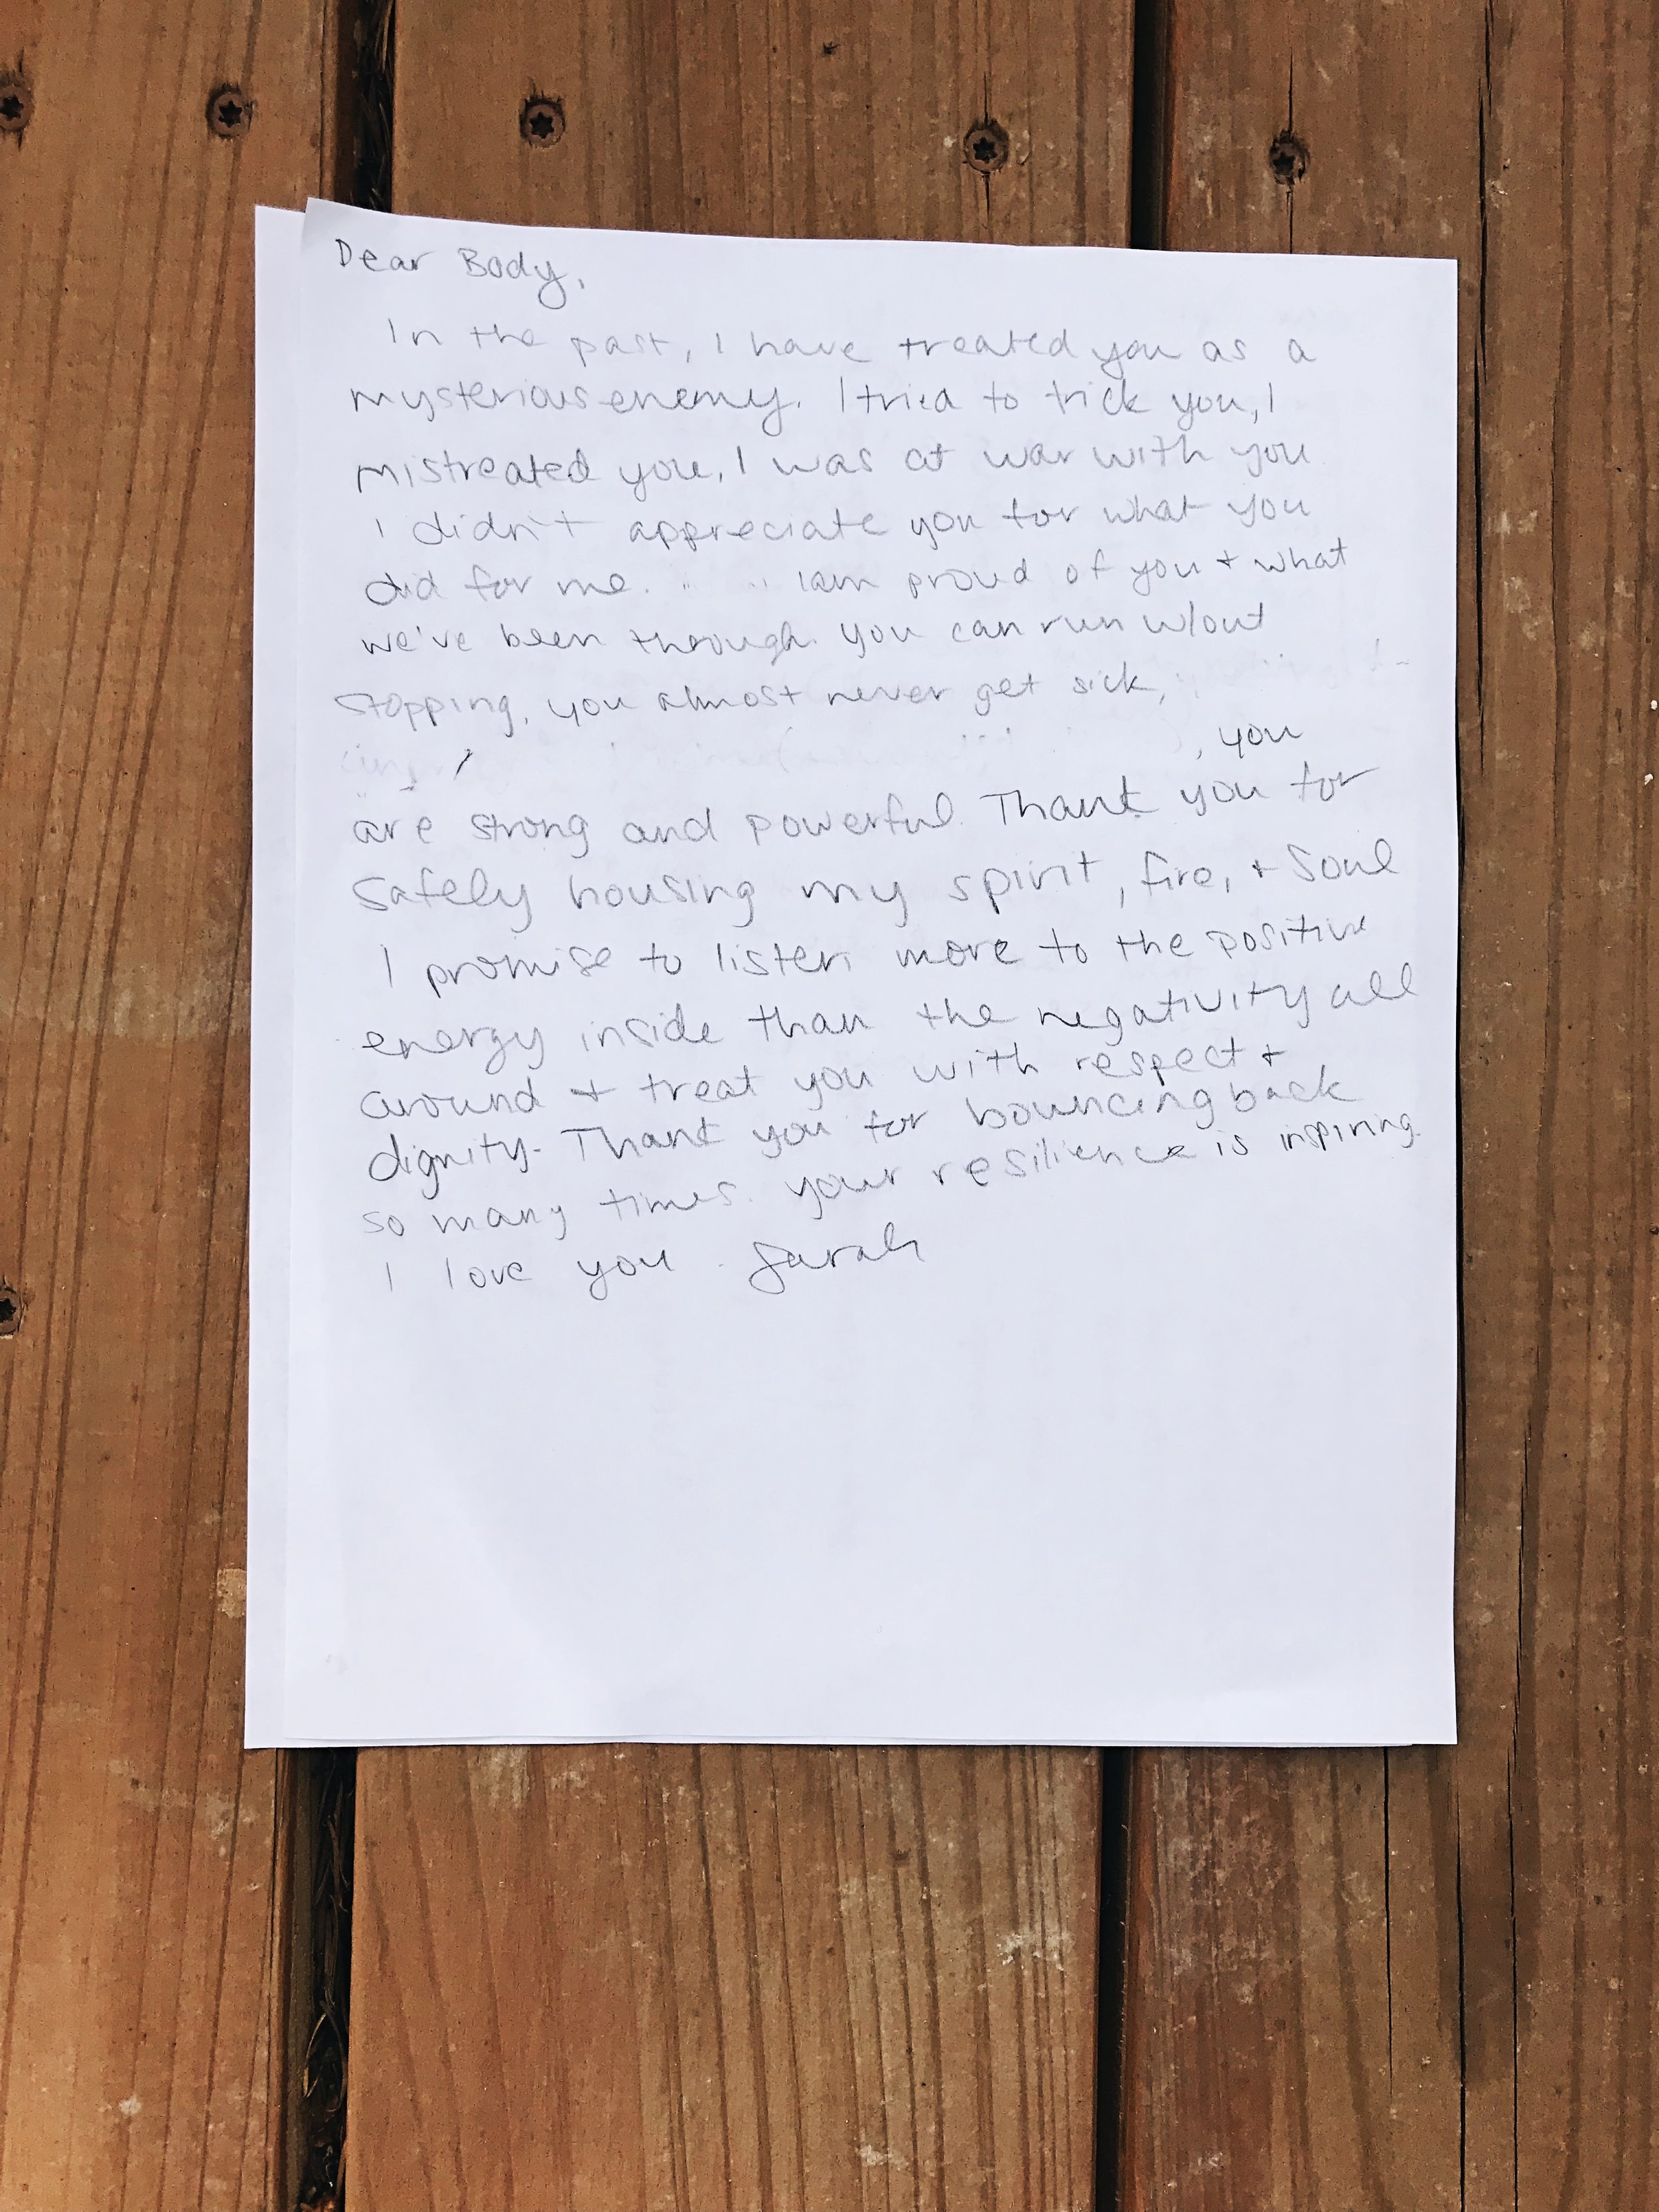 Dear Body,
In the past, I have treated you as a
mysterious enemy. I tried to trick you, I
mistreated you, I was at war with you
I didn't appreciate you for what you
did for me. I am proud of you + what
we've been through. you can run w/out
stopping, you almost never get sick,
, you
are strong and powerful. Thank you for
safely housing my spirit, fire, + soul
I promise to listen more to the positive
energy inside than the negativity all
around + treat you with respect +
dignity. Thank you for bouncing back
so many times. your resilience is inspiring.
I love you. Sarah